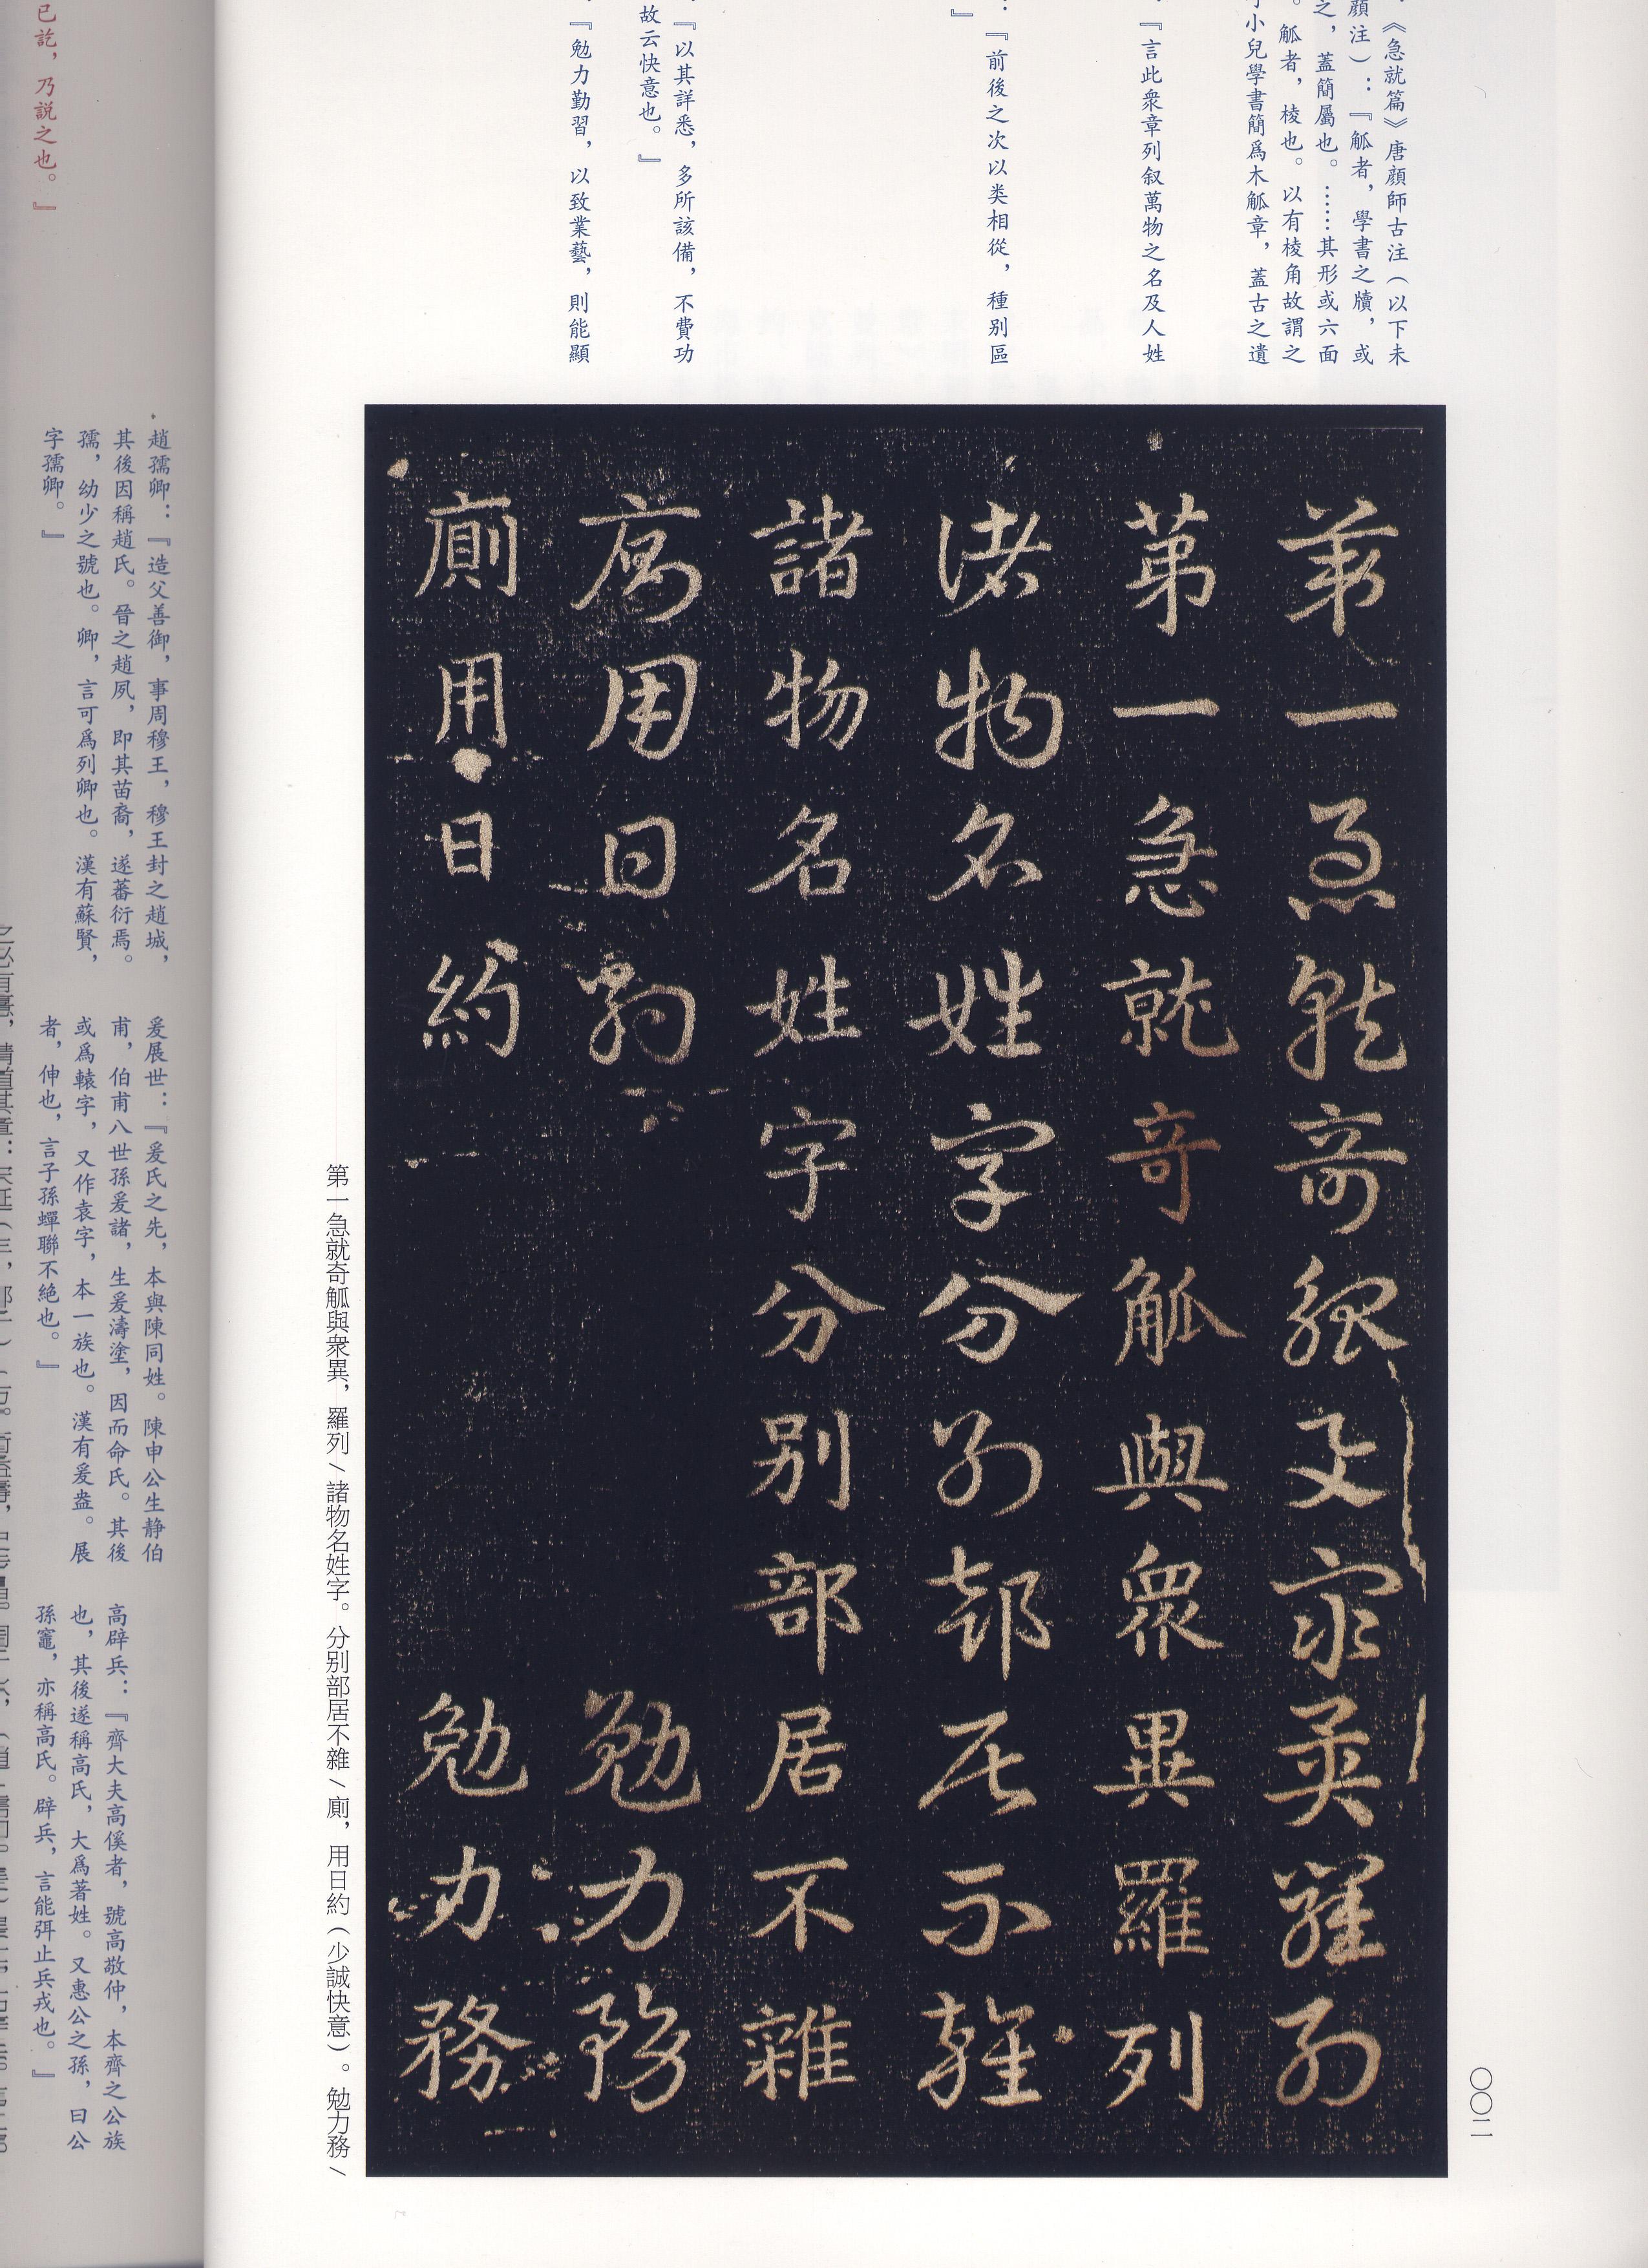 《急就篇》唐顔師古注（以下未
顔注）：『觚者，學書之牘，或
之，蓋簡屬也。……其形或六面
。觚者，棱也。以有棱角故謂之
小兒學書簡爲木觚章，蓋古之遺
『言此衆章列叙萬物之名及人姓
：『前後之次以类相從，種别區
』
『以其詳悉，多所該備，不費功
故云快意也。』
『勉力勤習，以致業藝，則能顯
苐一急就奇觚與衆異羅列
苐一急就奇觚與衆異羅列
諸物名姓字分别部居不雜
諸物名姓字分别部居不雜
廁用日約 勉力務
廁用日約 勉力務
第一急就奇觚與衆異，羅列/諸物名姓字。分别部居不雜/廁，用日約（少誠快意）。勉力務/
〇〇二
趙孺卿：『造父善御，事周穆王，穆王封之趙城，
其後因稱趙氏。晉之趙夙，即其苗裔，遂蕃衍焉。
孺，幼少之號也。卿，言可爲列卿也。漢有蘇賢，
字孺卿。』
爰展世：『爰氏之先，本與陳同姓。陳申公生静伯
甫，伯甫八世孫爰諸，生爰濤塗，因而命氏。其後
或爲轅字，又作袁字，本一族也。漢有爰盎。展
者，伸也，言子孫蟬聯不絶也。』
高辟兵：『齊大夫高傒者，號高敬仲，本齊之公族
也，其後遂稱高氏，大爲著姓。又惠公之孫，曰公
孫竈，亦稱高氏。辟兵，言能弭止兵戎也。』
已訖，乃説之也。』